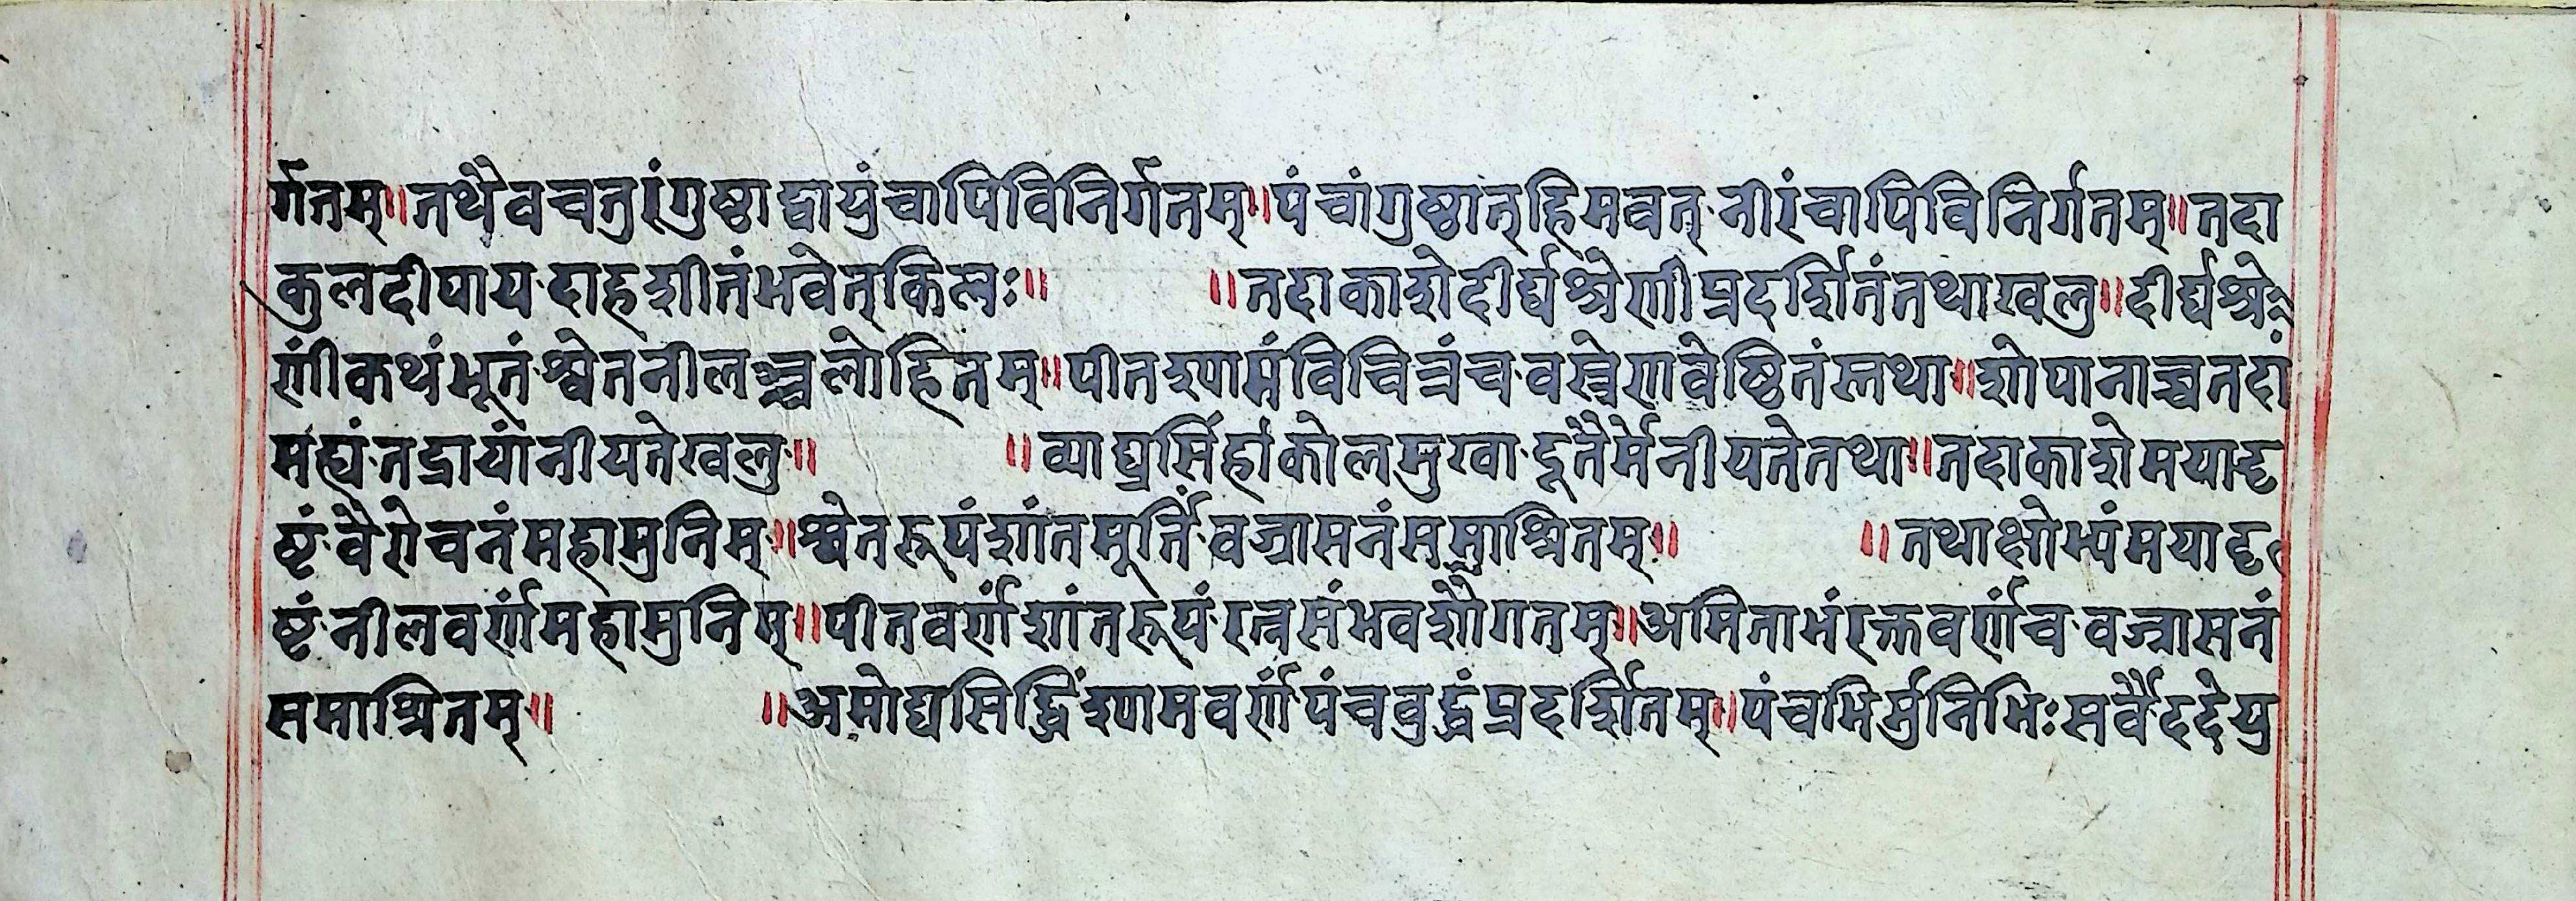 र्गतम्॥तथैवचतुरंगुष्ठाद्वायुंचापिविनिर्गतम्॥पंचांगुष्ठात्हिमवत्नीरंचापिविनिर्गतम्॥तदा
कुलदीपायदाहशीतंभवेत्किलः॥ ॥तदाकाशेदीर्घश्रेणीप्रदर्शितंतथाखलु॥दीर्घश्रे
णींकथंभूतंश्वेतनीलञ्चलोहितम्॥पीतश्यामंविचित्रंचवस्त्रेणवेष्टितंस्तथा॥शोपानाच्चतदां
मह्यंतद्रायांनीयतेखलु॥ ॥व्याघ्रसिंहांकोलमुखादूतैर्मेनीयतेतथा॥तदाकाशेमयादृ
ष्टंवैरोचनंमहामुनिम्॥श्वेतरूपंशांतमूर्तिंवज्रासनंसमाश्रितम्॥ ॥तथाक्षोभ्यंमयादृ
ष्टंनीलवर्णंमहामुनिम्॥पीतवर्णंशांतरूपंरत्नसंभवशौगतम्॥अमिताभंरक्तवर्णंचवज्रासनं
समाश्रितम्॥ ॥अमोघसिद्धिंश्यामवर्णंपंचबुद्धंप्रदर्शितम्॥पंचभिर्मुनिभिःसर्वैददेयु